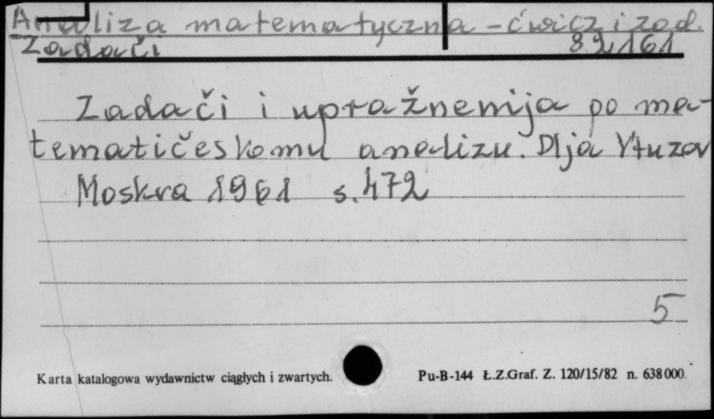 Analiza matematyczna - ćwicz i zad.
Zadači 82161
Zadači i upražnenija po ma-
tematičeskomu analizu. Dlja Vtuzov
Moskva 1961 s. 472
5
Karta katalogowa wydawnictw ciągłych i zwartych. Pu-B-144 Ł.Z.Graf. Z. 120/15/82 n. 638000.